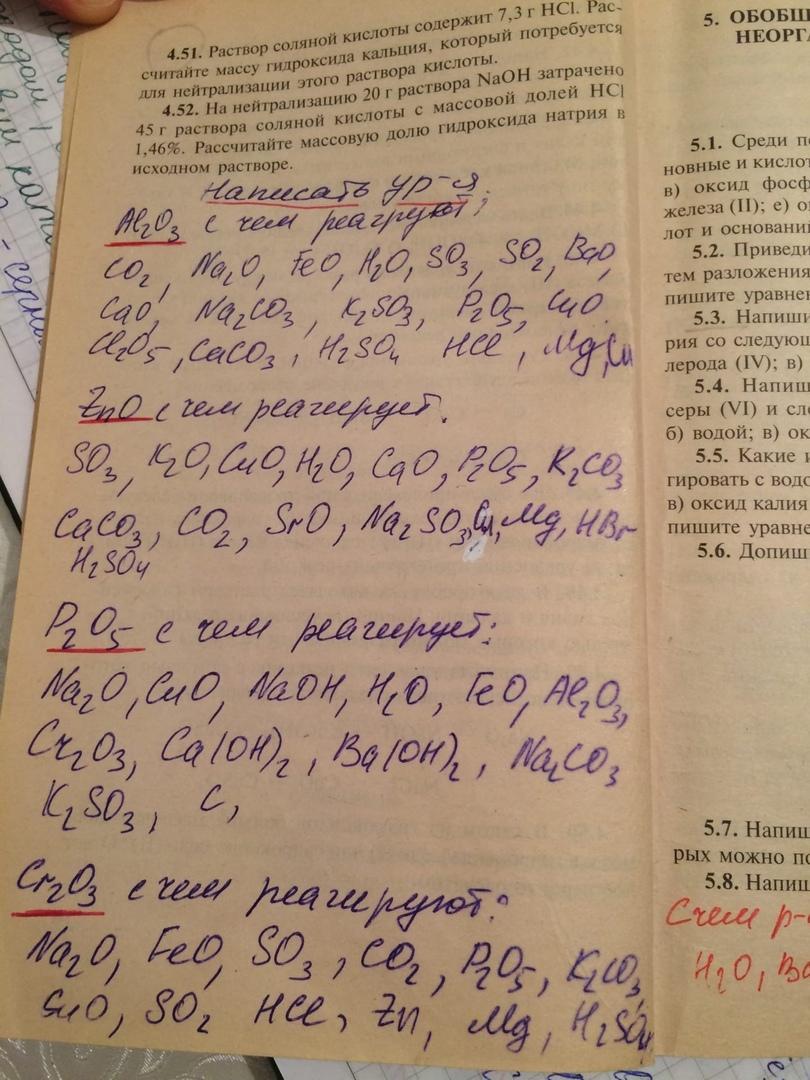 4.51. Раствор соляной кислоты содержит 7,3 г HCl. Рас-
считайте массу гидроксида кальция, который потребуется
для нейтрализации этого раствора кислоты.
4.52. На нейтрализацию 20 г раствора NaOH затрачено
45 г раствора соляной кислоты с массовой долей HCl
1,46%. Рассчитайте массовую долю гидроксида натрия в
исходном растворе.
Написать ур-я;
Al₂O₃ с чем реагруют;
CO₂, Na₂O, FeO, H₂O, SO₃, SO₂, BaO,
CaO, Na₂CO₃, K₂SO₃, P₂O₅, CuO.
Cl₂O₅, CaCO₃, H₂SO₄ HCl, Mg,
ZnO с чем реагирует.
SO₃, K₂O, CuO, H₂O, CaO, P₂O₅, K₂CO₃
CaCO₃, CO₂, SrO, Na₂SO₃, Cu, Mg, HBr
H₂SO₄
P₂O₅ с чем реагирует:
Na₂O, CuO, NaOH, H₂O, FeO, Al₂O₃,
Cr₂O₃, Ca(OH)₂, Ba(OH)₂, Na₂CO₃
K₂SO₃, C,
Cr₂O₃ с чем реагируют?
Na₂O, FeO, SO₃, CO₂, P₂O₅, K₂CO₃,
CuO, SO₂ HCl, Zn, Mg, H₂SO₄
5. ОБОБЩ
НЕОРГА
5.1. Среди
новные и кислот
в) оксид фосф
железа (II); е)
лот и основани
5.2. Приведи
тем разложения
пишите уравнен
5.3. Напиши
рия со следующ
лерода (IV); в)
5.4. Напиш
серы (VI) и сле
б) водой; в) ок
5.5. Какие
гировать с водо
в) оксид калия
пишите уравне
5.6. Допиш
5.7. Напиш
рых можно по
5.8. Напиш
С чем р-
H₂O, Ba